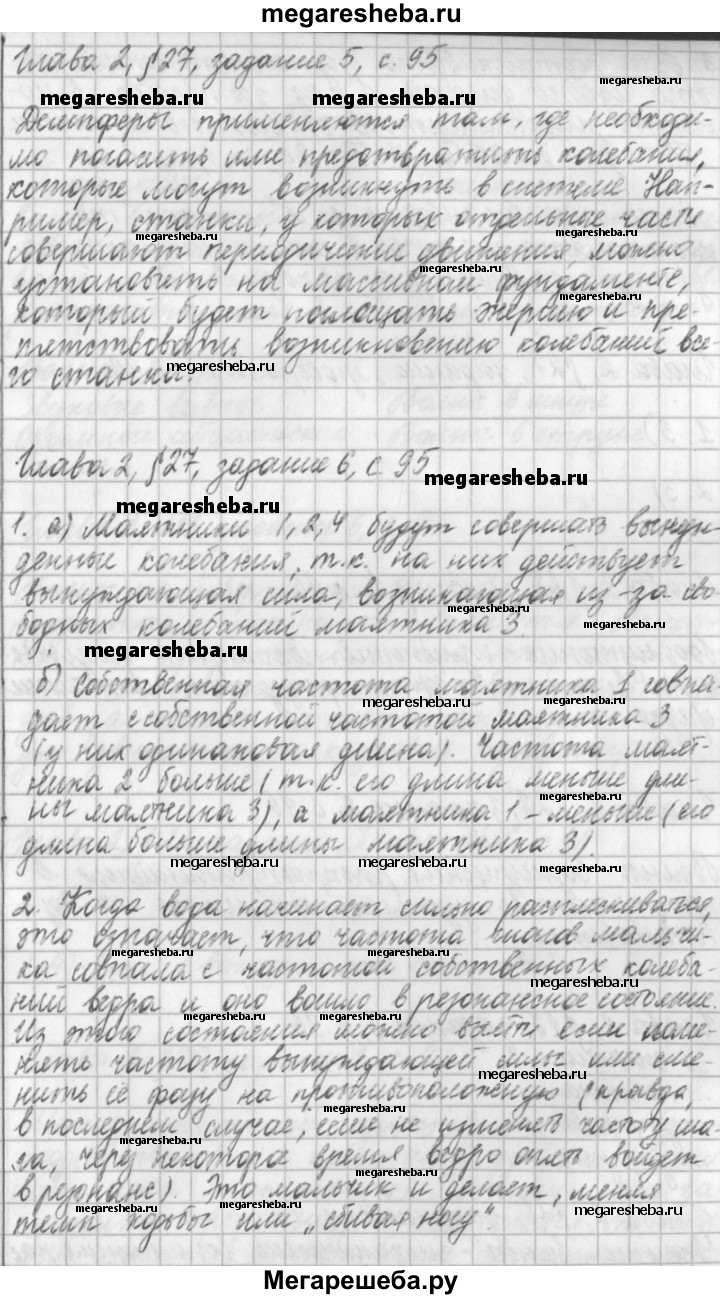 megaresheba.ru
Глава 2, §27, задание 5, с. 95
megaresheba.ru
megaresheba.ru megaresheba.ru
Демпферы применяются там, где необходи-
мо погасить или предотвратить колебания,
которые могут возникнуть в системе. Нап-
megaresheba.ru
ример, станки, у которых отдельные части
megaresheba.ru
совершают периодические движения можно
megaresheba.ru
установить на массивном фундаменте,
megaresheba.ru
который будет поглощать энергию и пре-
пятствовать возникновению колебаний все-
го станка.
megaresheba.ru
Глава 2, §27, задание 6, с 95
megaresheba.ru
megaresheba.ru
1. а) Маятники 1, 2, 4 будут совершать вынуж-
денные колебания, т.к. на них действует
вынуждающая сила, возникающая из-за сво-
megaresheba.ru
бодных колебаний маятника 3.
megaresheba.ru
megaresheba.ru
б) Собственная частота маятника 1 совпа-
megaresheba.ru megaresheba.ru
дает с собственной частотой маятника 3
(у них одинаковая длина). Частота маят-
ника 2 больше (т.к. его длина меньше дли-
megaresheba.ru
ны маятника 3), а маятника 1 - меньше (его
длина больше длины маятника 3).
megaresheba.ru megaresheba.ru
megaresheba.ru
2. Когда вода начинает сильно расплескиваться,
это означает, что частота шагов мальчи-
megaresheba.ru megaresheba.ru
ка совпала с частотой собственных колеба-
megaresheba.ru
ний ведра и оно вошло в резонансное состояние.
megaresheba.ru megaresheba.ru
Из этого состояния можно выйти если поме-
нять частоту вынуждающей силы или сме-
megaresheba.ru
нить её фазу на противоположную (правда,
megaresheba.ru
в последнем случае, если не изменять частоту ша-
megaresheba.ru
га, через некоторое время ведро опять войдет
megaresheba.ru
в резонанс). Это мальчик и делает, меняя
megaresheba.ru megaresheba.ru
темп ходьбы или „сбивая ногу".
Мегарешеба.ру